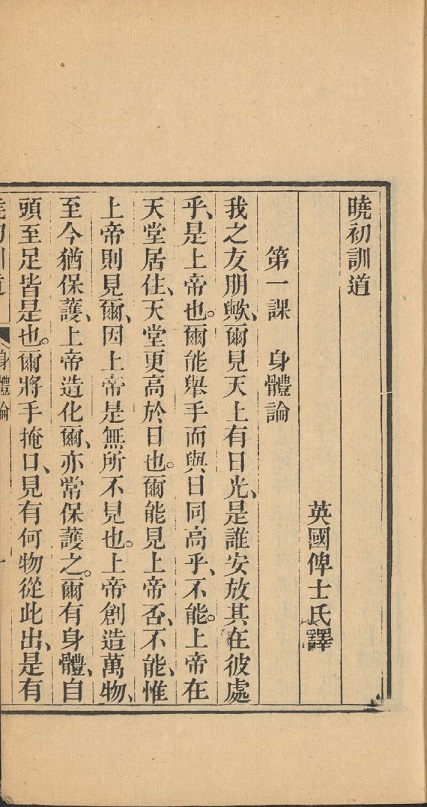 曉初訓道
英國俾士氏譯
第一課　身體論
我之友朋歟、爾見天上有日光、是誰安放其在彼處
乎、是上帝也。爾能舉手而與日同高乎、不能。上帝在
天堂居住、天堂更高於日也。爾能見上帝否、不能、惟
上帝則見爾、因上帝是無所不見也。上帝創造萬物、
至今猶保護、上帝造化爾、亦常保護之。爾有身體、自
頭至足皆是也。爾將手掩口、見有何物從此出、是有
初訓道
身體論